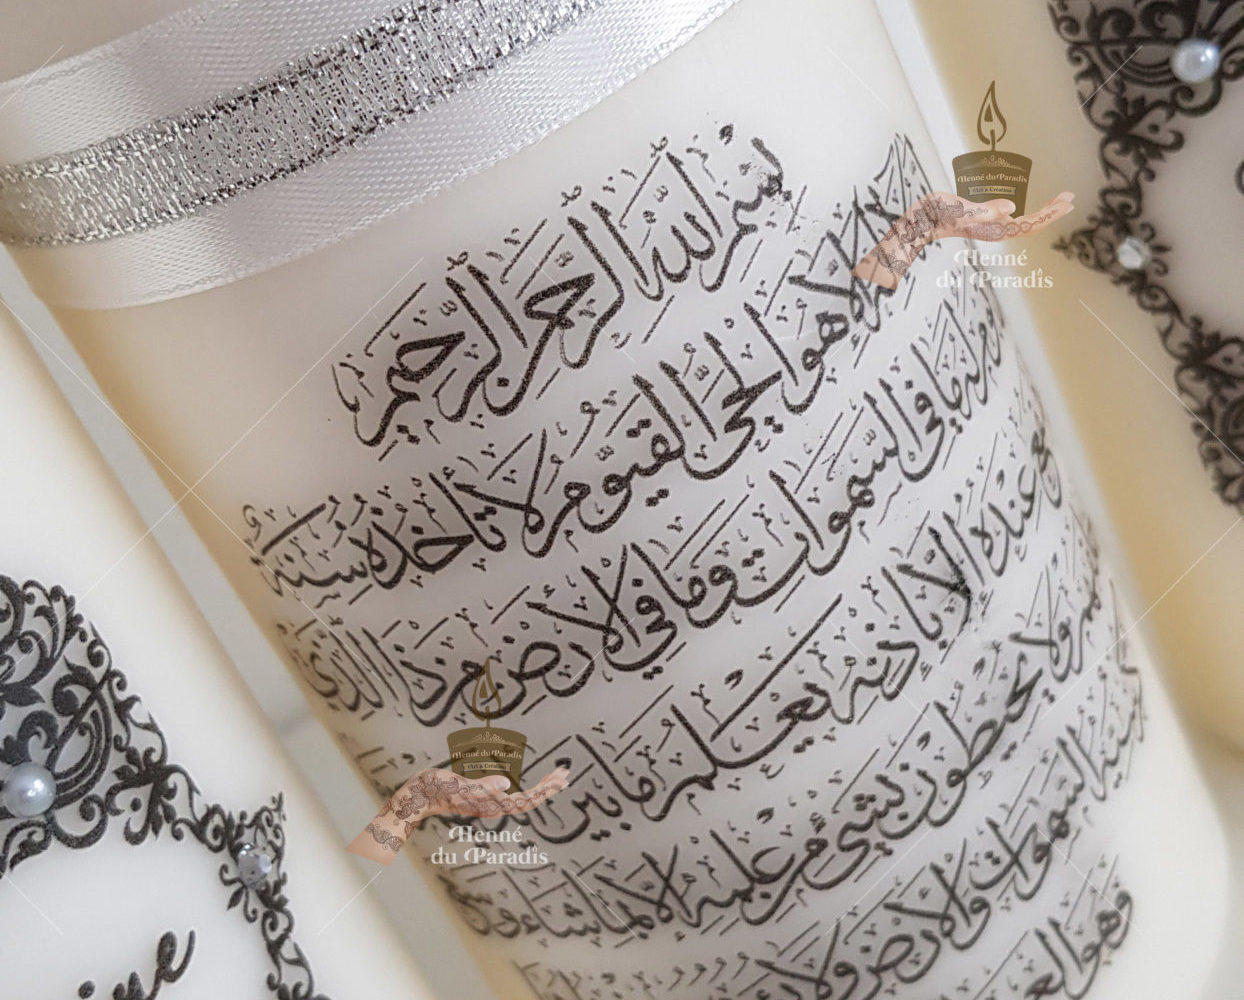 بسم الله الرحمن الرحيم
لا هو الحي القيوم لا تأخذه سنة
له ما في السموات وما في الأرض من ذا الذي
عنده إلا بإذنه يعلم ما بين
ولا يحيطون بشيء من علمه إلا بما شاء
السموات والأرض ولا
وهو
Henné du Paradis
Art & Création
Henné
du Paradis
Henné du Paradis
Art & Création
Henné
du Paradis